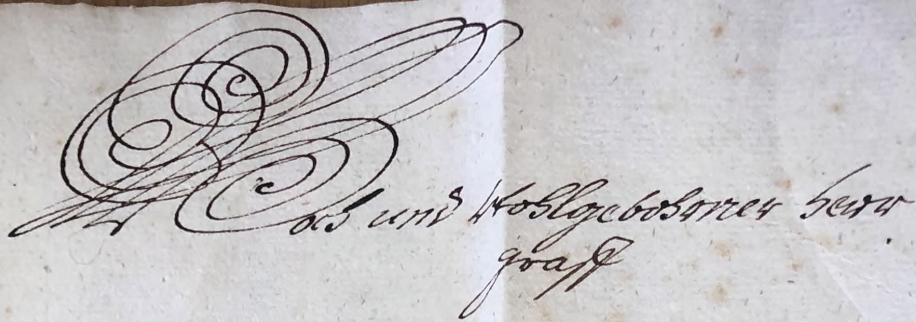 Hoch und Wohlgebohrner Herr
graff